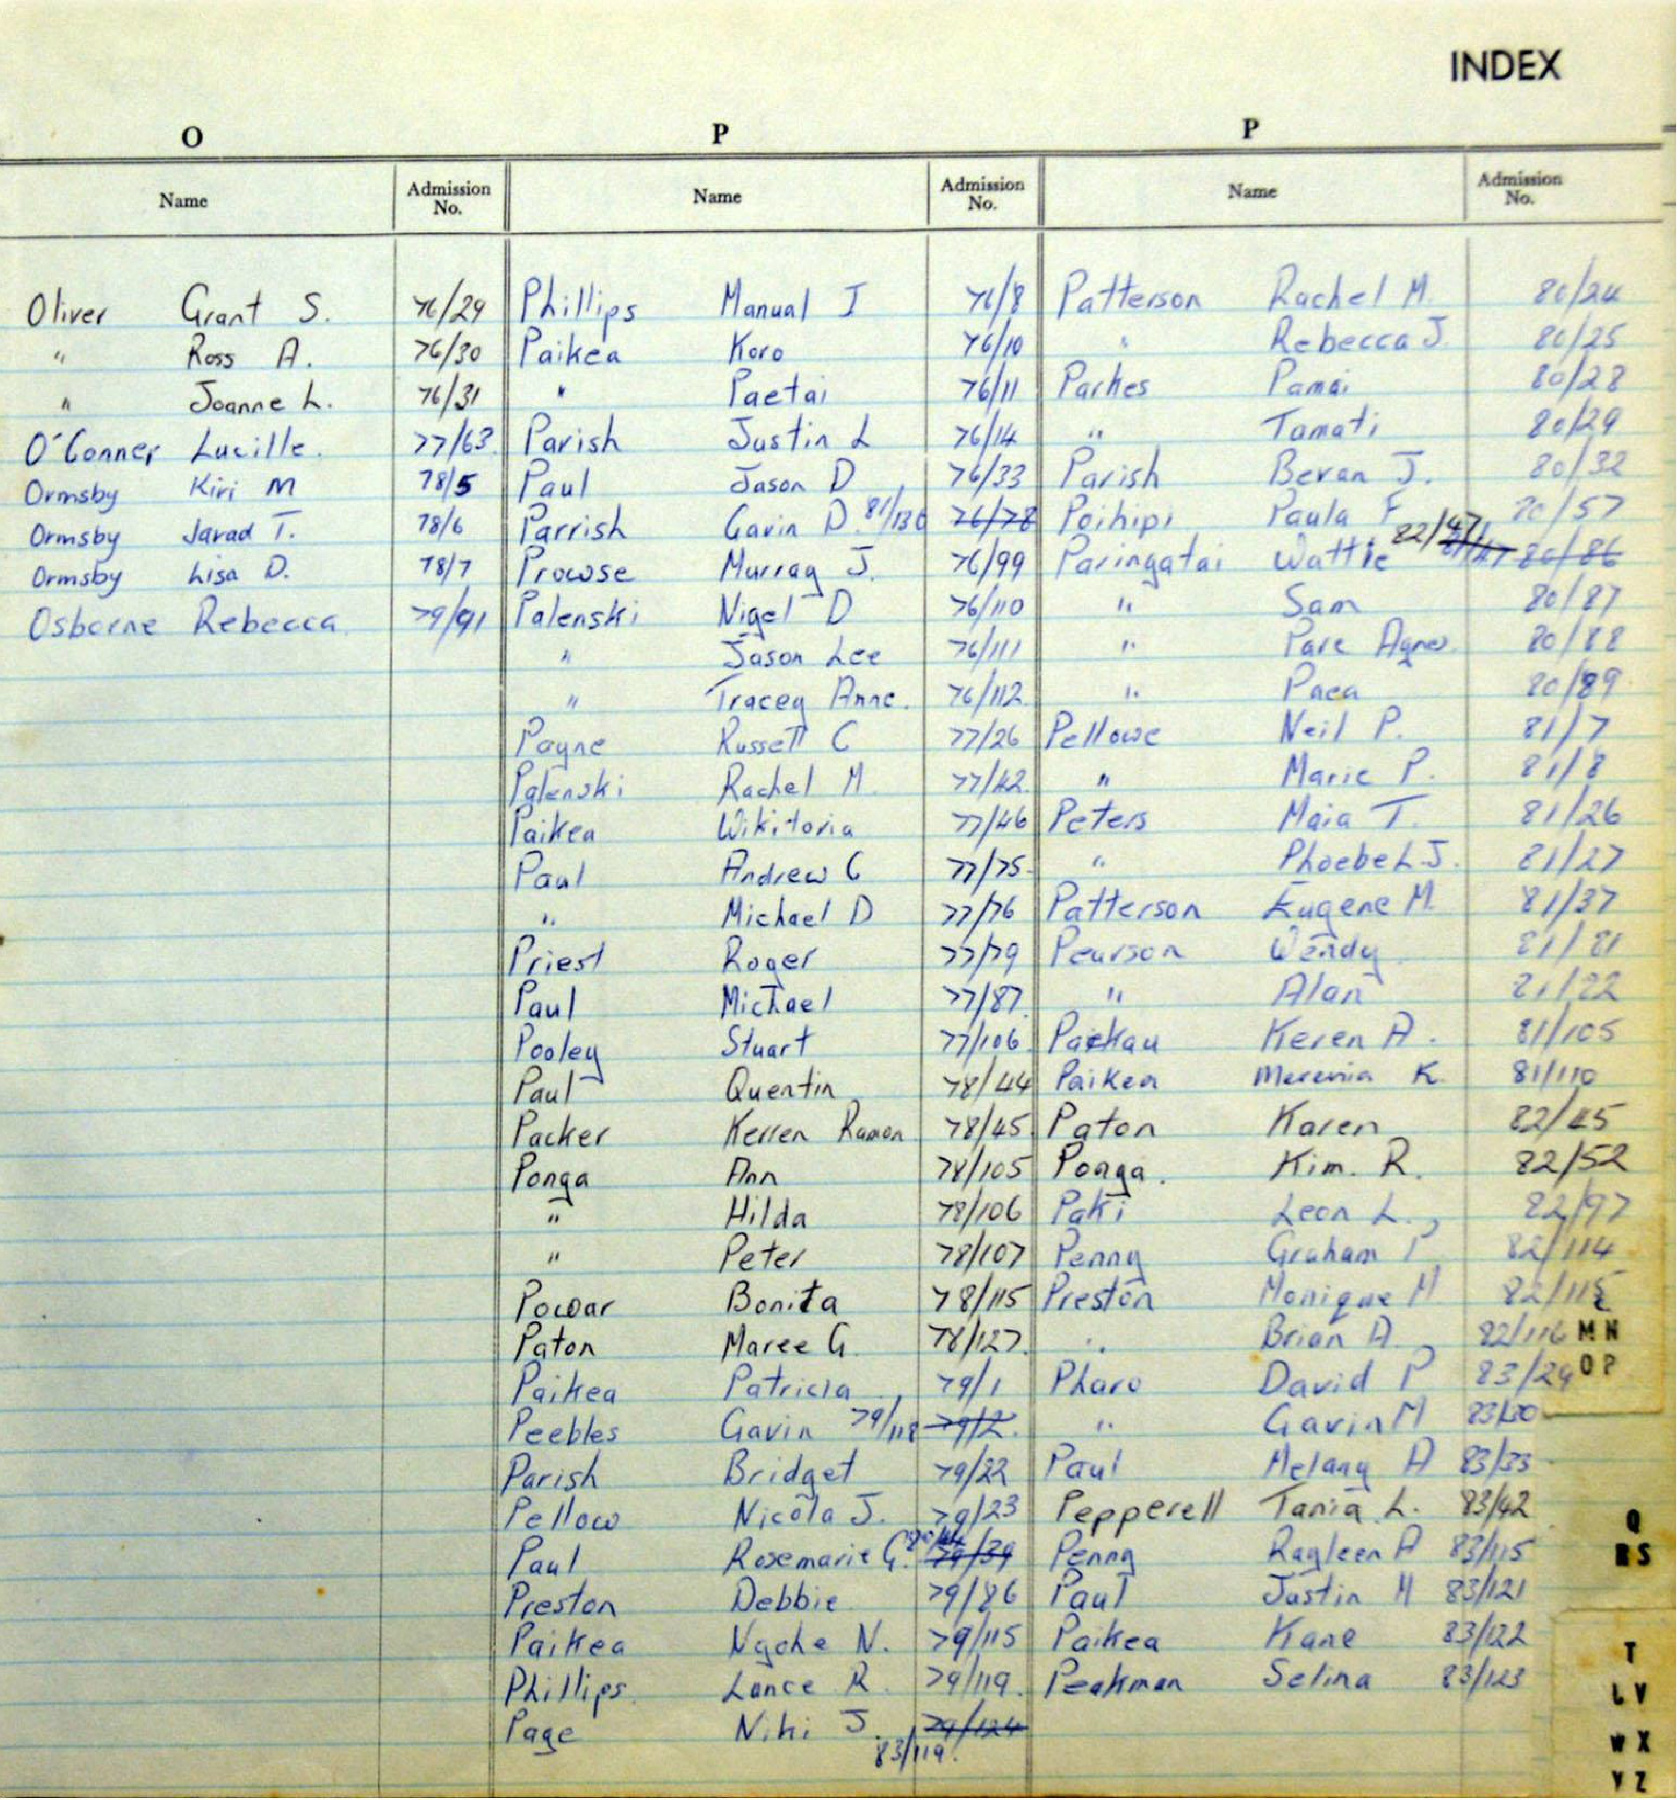 INDEX
O
Name Admission No.
Oliver Grant S. 76/29
" Ross A. 76/30
" Joanne L. 76/31
O'Conner Lucille. 77/63
Ormsby Kiri M 78/5
Ormsby Javad T. 78/6
Ormsby Lisa D. 78/7
Osborne Rebecca 79/91
P
Name Admission No.
Phillips Manual J 76/8
Paikea Koro 76/10
" Paetai 76/11
Parish Justin L 76/14
Paul Jason D 76/33
Parrish Gavin D. 81/130 76/78
Prowse Murray J. 76/99
Palenski Nigel D 76/110
" Jason Lee 76/111
" Tracey Anne. 76/112
Payne Russell C 77/26
Palenski Rachel M. 77/42
Paikea Wikitoria 77/46
Paul Andrew C 77/75
" Michael D 77/76
Priest Roger 77/79
Paul Michael 77/87
Pooley Stuart 77/106
Paul Quentin 78/44
Packer Kerren Ramon 78/45
Ponga Ann 78/105
" Hilda 78/106
" Peter 78/107
Powar Bonita 78/115
Paton Maree G. 78/127
Paikea Patricia 79/1
Peebles Gavin 79/118 79/2
Parish Bridget 79/22
Pellow Nicola J. 79/23
Paul Rosemarie G. 79/39
Preston Debbie 79/86
Paikea Ngohe N. 79/115
Phillips Lance R. 79/119
Page Niki J. 79/124
83/119.
P
Name Admission No.
Patterson Rachel M. 80/24
" Rebecca J. 80/25
Parkes Pamai 80/28
" Tamati 80/29
Parish Bevan J. 80/32
Poihipi Paula F 80/57
Paringatai Wattie 82/47 81/47 80/86
" Sam 80/87
" Pare Agnes 80/88
" Paea 80/89
Pellowe Neil P. 81/7
" Marie P. 81/8
Peters Maia T. 81/26
" Phoebe L J. 81/27
Patterson Eugene M. 81/37
Pearson Wendy 81/81
" Alan
Keren A. 81/105
Paikea K. 81/110
Paton Karen 82/45
Ponga. Kim. R. 82/52
Paki Leon L. 82/97
Penny Graham P 82/114
Preston Monique M 82/115
" Brian A 82/116
Pharo David P 83/29
" Gavin M 83/30
Paul Melany A 83/33
Pepperell Tania L. 83/42
Penny Rayleen A 83/115
Paul Justin M 83/121
Paikea Kane 83/122
Peakman Selina 83/123
M N
O P
Q
R S
T
U V
W X
Y Z